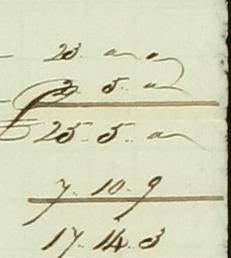 23 - -
2. 5. -
25. 5. -
7. 10. 9
17. 14. 3